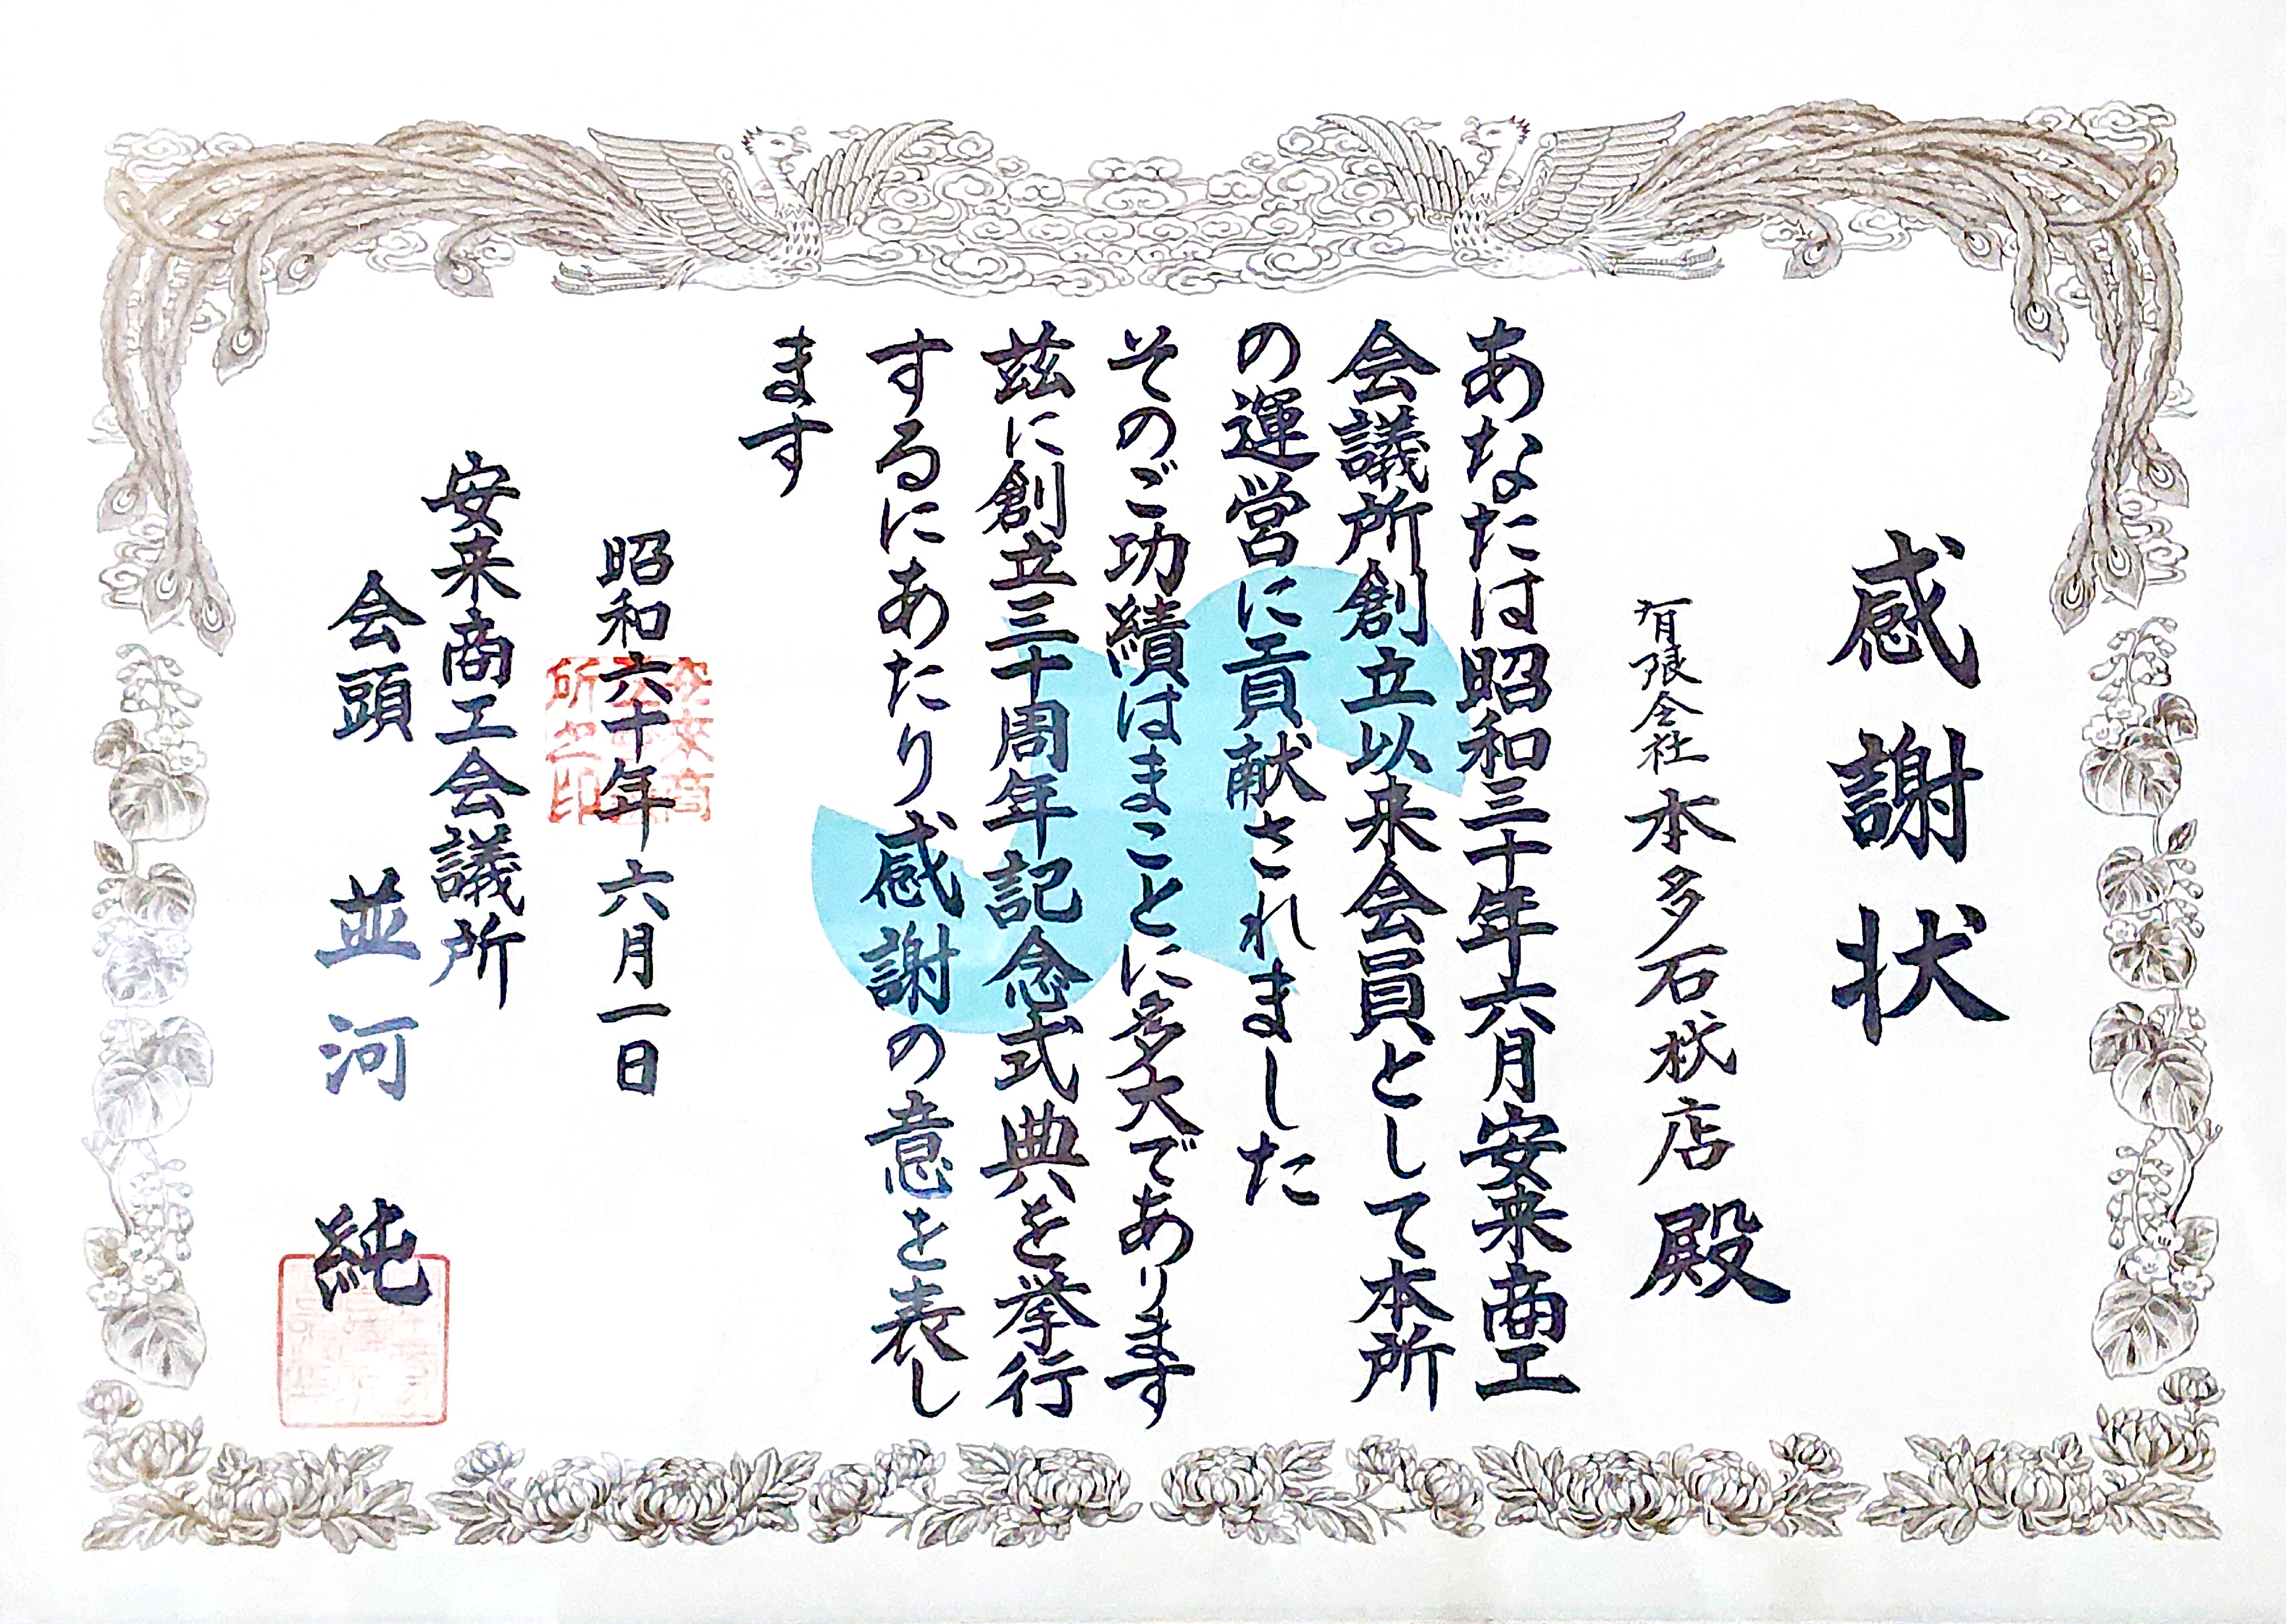 感謝状
有限会社本多石材店殿
あなたは昭和三十年六月安来商工
会議所創立以来会員として本所
の運営に貢献されました
そのご功績はまことに多大であります
茲に創立三十周年記念式典を挙行
するにあたり感謝の意を表し
ます
昭和六十年六月一日
安来商工会議所
会頭 並河 純